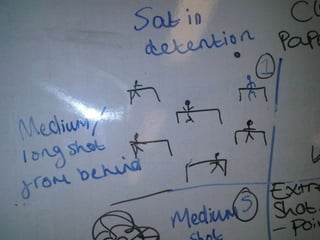 Sat in
detention
Medium/
long shot
from behind
1
Medium
shot
5
Extr
Shot
Poin
C
Pape